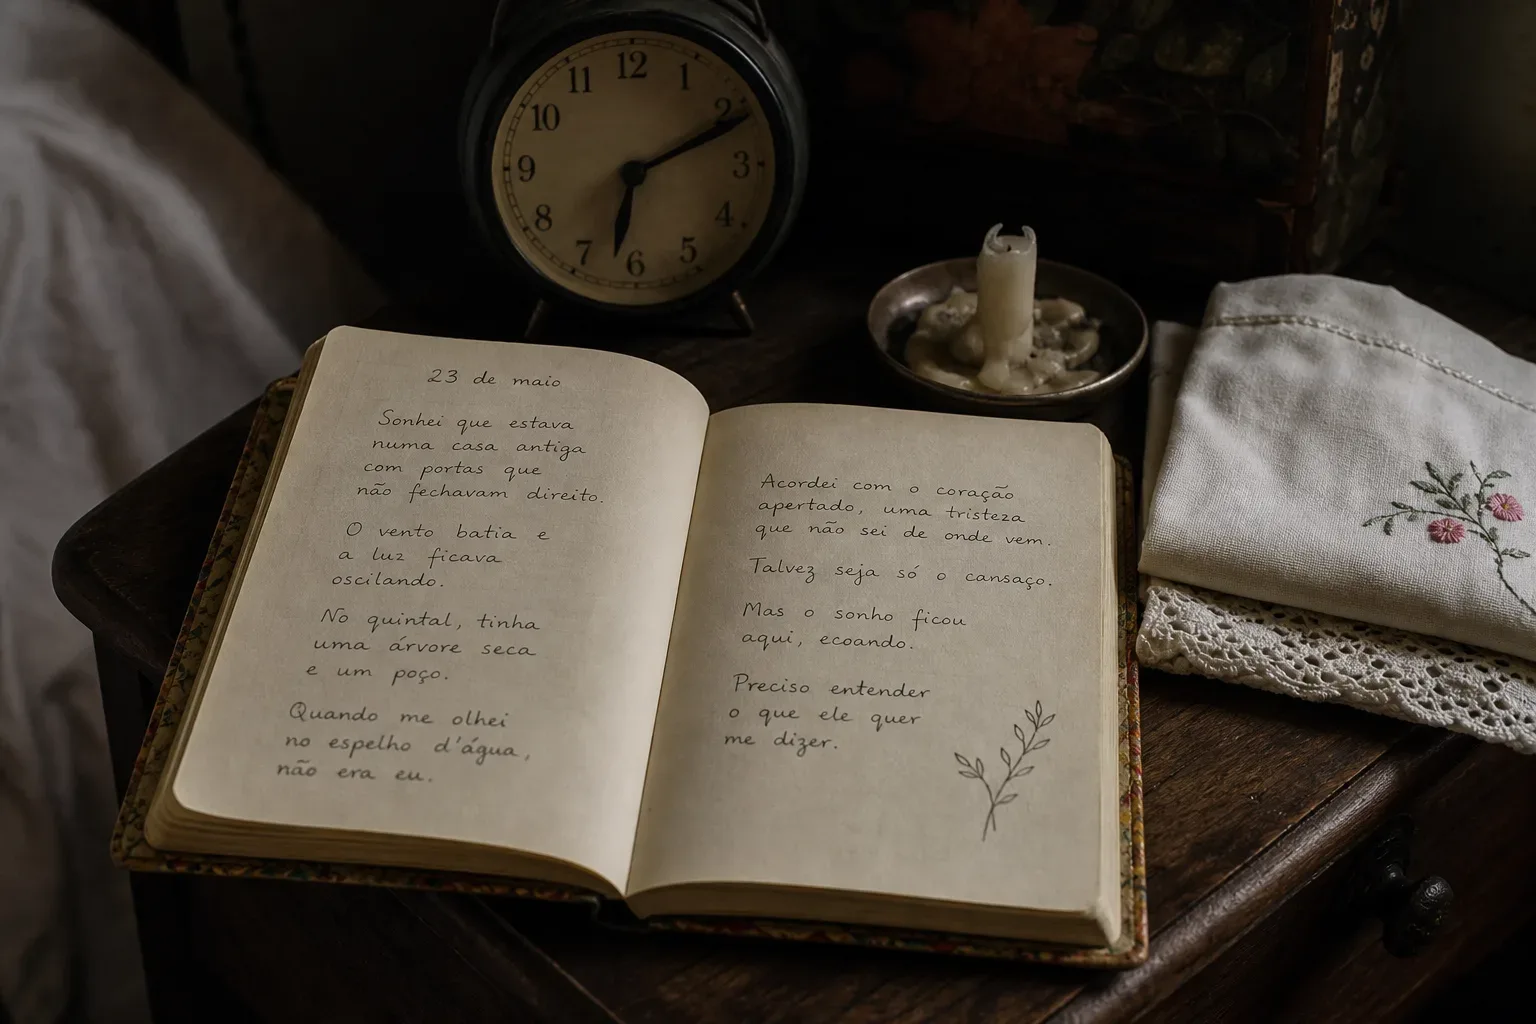 12
1
2
3
4
5
6
7
8
9
10
11
23 de maio
Sonhei que estava
numa casa antiga
com portas que
não fechavam direito.
O vento batia e
a luz ficava
oscilando.
No quintal, tinha
uma árvore seca
e um poço.
Quando me olhei
no espelho d'água,
não era eu.
Acordei com o coração
apertado, uma tristeza
que não sei de onde vem.
Talvez seja só o cansaço.
Mas o sonho ficou
aqui, ecoando.
Preciso entender
o que ele quer
me dizer.